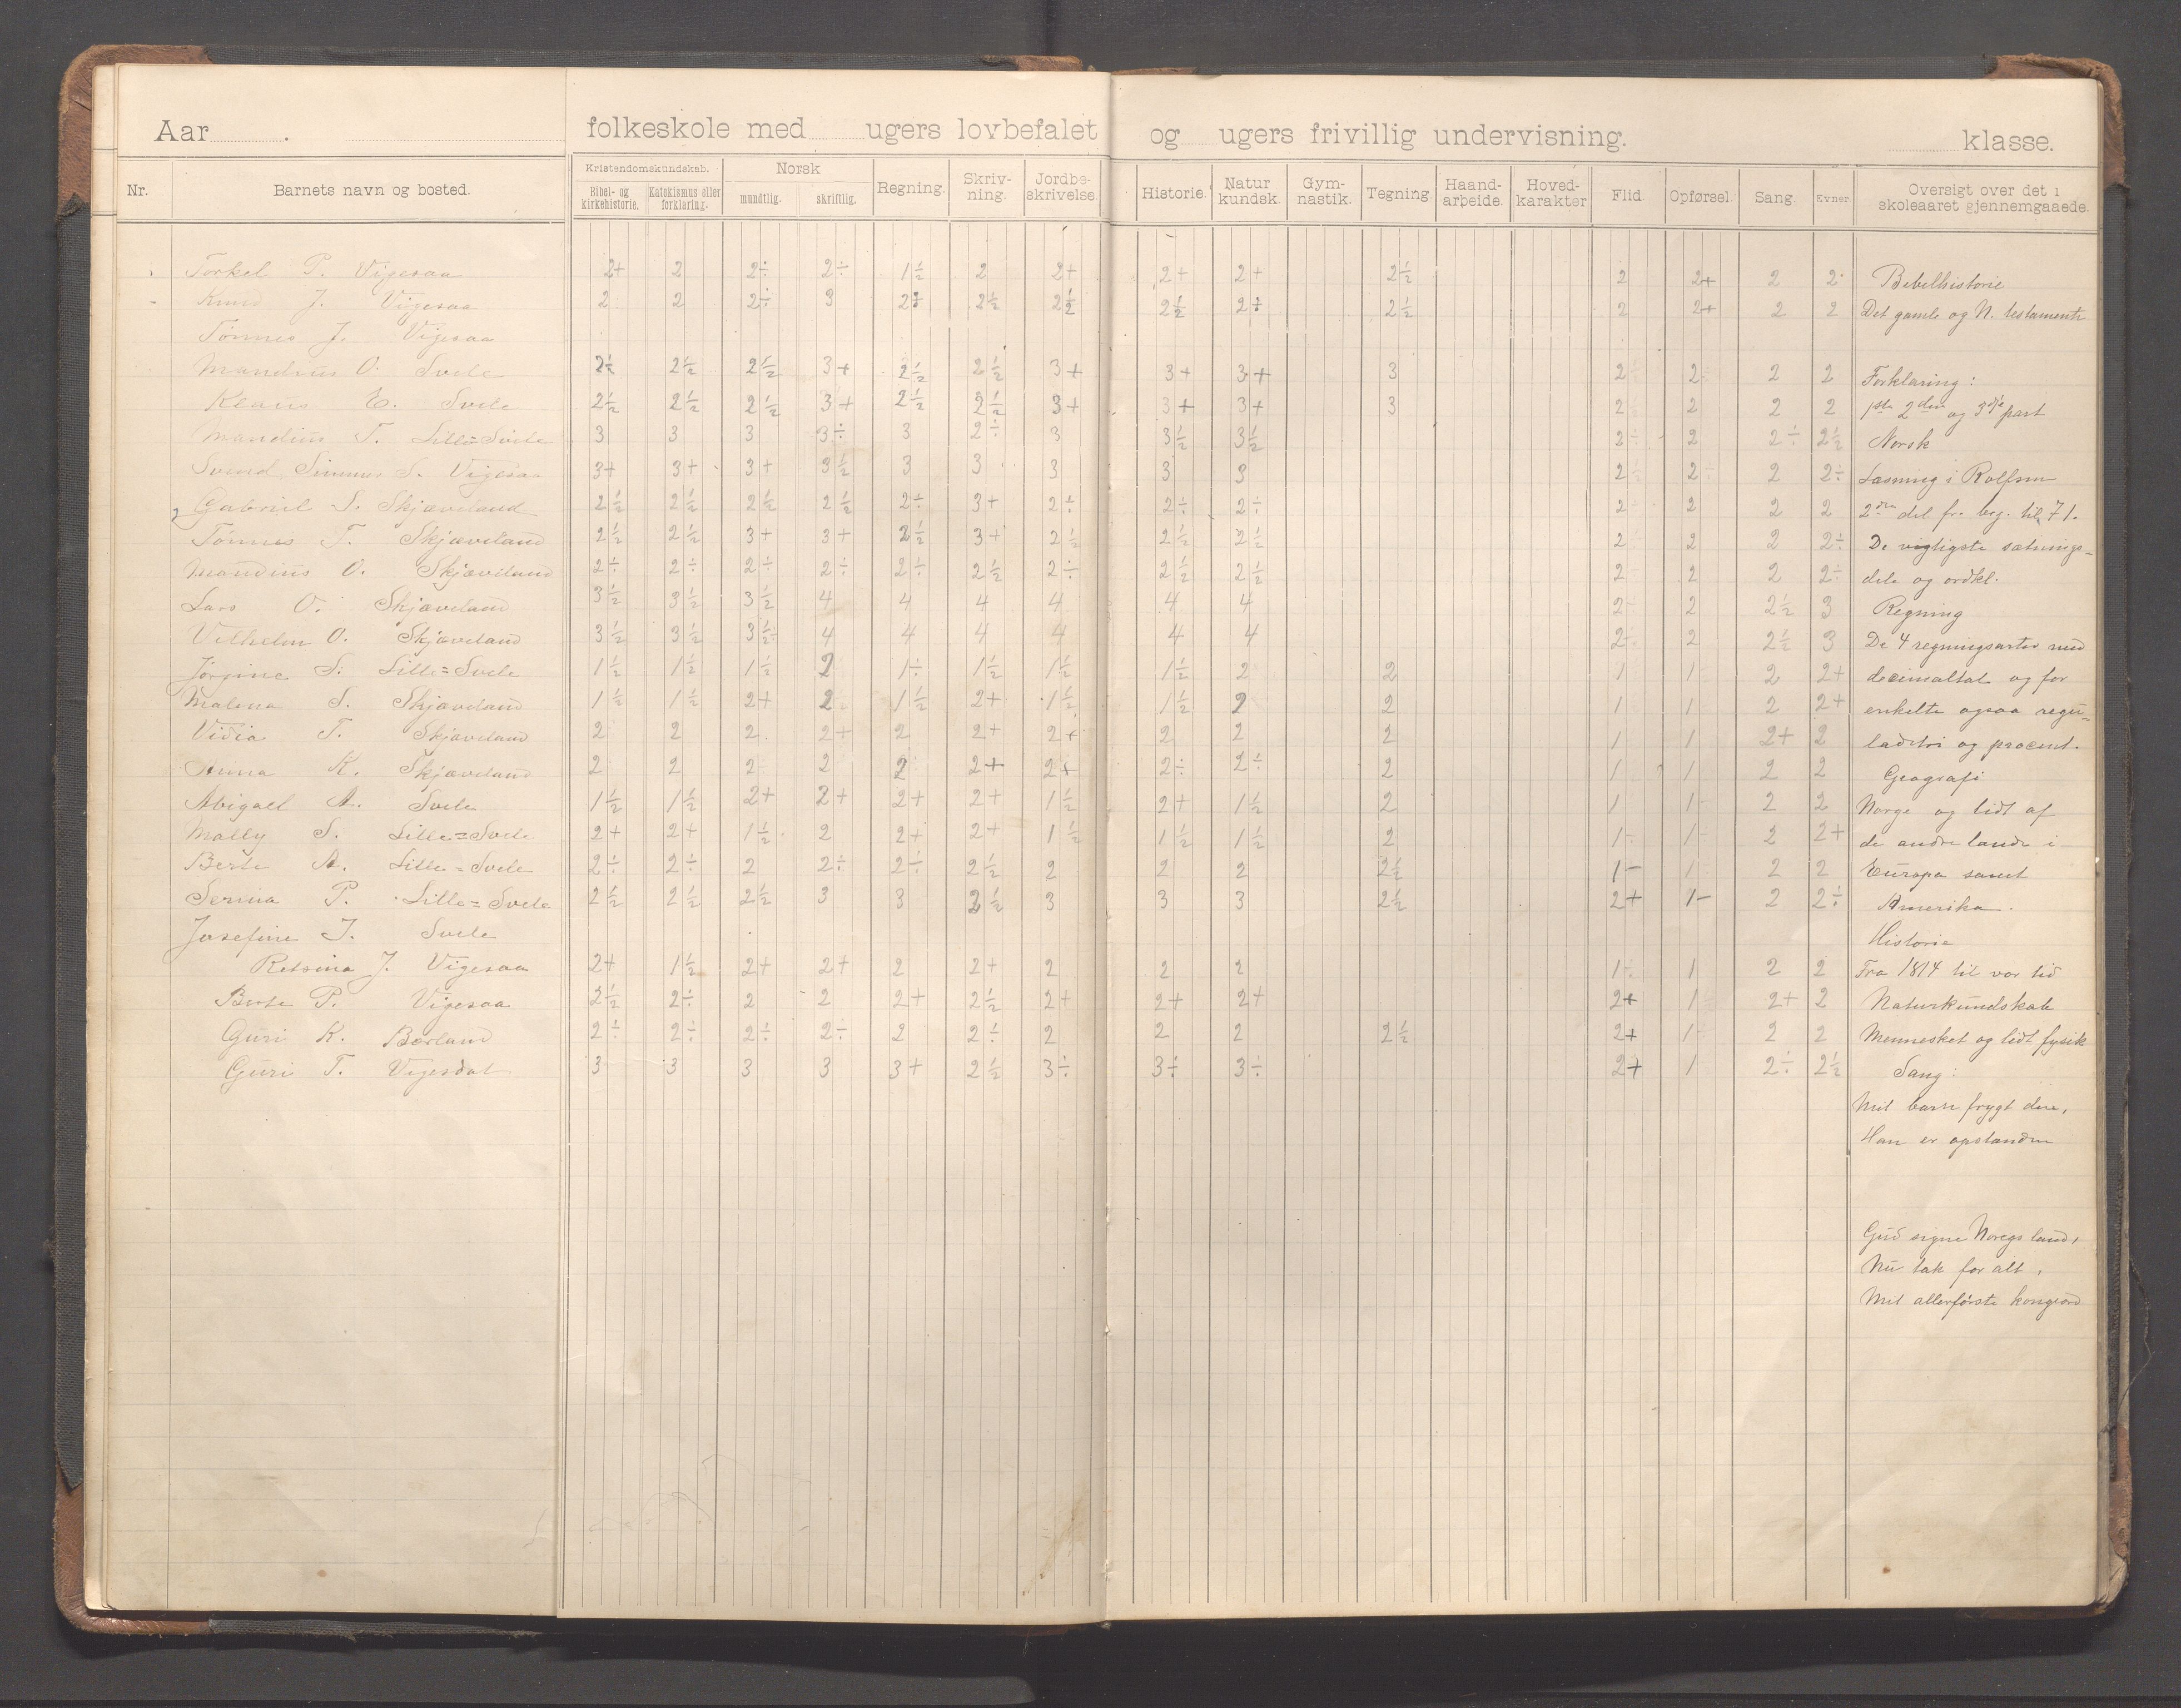 Aar . folkeskole med ugers lovbefalet og ugers frivillig undervisning. klasse.
Nr. Barnets navn og bosted. Kristendomskundskab. Bibel- og kirkehistorie. Katekismus eller forklaring. Norsk mundtlig. skriftlig. Regning. Skriv-ning. Jordbe-skrivelse. Historie. Natur kundsk. Gym-nastik. Tegning Haand-arbeide. Hoved-karakter Flid. Opførsel. Sang. Evner. Oversigt over det i skoleaaret gjennemgaaede.
Torkel P. Vigesaa 2+ 2 2÷ 2÷ 1½ 2 2+ 2+ 2+ 2½ 2 2+ 2 2 Bibelhistorie
Knud J. Vigesaa 2 2 2÷ 3 2÷ 2½ 2½ 2½ 2÷ 2½ 2 2+ 2 2 Det gamle og N. testamente
Tønnes J. Vigesaa
Mandius O. Svele 2½ 2½ 2½ 3+ 2½ 2½ 3+ 3+ 3+ 3 2÷ 2÷ 2 2 Forklaring:
Klaus E. Svele 2½ 2½ 2½ 3+ 2½ 2½ 3+ 3+ 3+ 3 2 2 2 2 1ste 2den og 3dje part
Mandius T. Lille=Svele 3 3 3 3÷ 3 2÷ 3 3½ 3½ 2÷ 2 2÷ 2½ Norsk
Svend Simmes S. Vigesaa 3+ 3+ 3+ 3½ 3 3 3 3 3 2÷ 2÷ 2 2÷ Læsning i Rolfsen
Gabriel S. Skjæveland 2½ 2½ 2½ 2½ 2÷ 3+ 2÷ 2÷ 2÷ 2 2 2 2 2den del fr. beg. til 71.
Tønnes T. Skjæveland 2½ 2½ 3+ 3+ 2½ 3+ 2½ 2½ 2½ 2 2 2 2÷ De vigtigste sætnings-
Mandius O. Skjæveland 2÷ 2÷ 2÷ 2÷ 2÷ 2½ 2÷ 2½ 2½ 2 2 2 2÷ dele og ordkl.
Lars O. Skjæveland 3½ 3½ 3½ 4 4 4 4 4 4 2 2 2½ 3 Regning
Vilhelm O. Skjæveland 3½ 3½ 3½ 4 4 4 4 4 4 2÷ 2 2½ 3 De 4 regningsarter med
Jørgine S. Lille=Svele 1½ 1½ 1½ 2 1÷ 1½ 1½ 1½ 2 2 1 1 2 2+ decimaltal og for
Malena S. Skjæveland 1½ 1½ 2+ 2 1½ 2+ 1½ 1½ 2 2 1 1 2 2+ enkelte ogsaa regu-
Vidia T. Skjæveland 2 2 2 2+ 2 2+ 2+ 2 2 2 1 1 2+ 2 ladetri og procent.
Anna K. Skjæveland 2 2 2 2 2 2+ 2+ 2÷ 2÷ 2 1 1 2 2 Geografi
Abigael A. Svele 1½ 1½ 2+ 2+ 2+ 2+ 1½ 2+ 1½ 2 1 1 2 2 Norge og lidt af
Mally S. Lille=Svele 2+ 2+ 1½ 2 2+ 2+ 1½ 1½ 1½ 2 1÷ 1 2 2+ de andre lande i
Berte A. Lille=Svele 2÷ 2÷ 2 2÷ 2÷ 2½ 2 2 2 2½ 1- 1 2 2 Europa samt
Serina P. Lille=Svele 2½ 2½ 2½ 3 3 2½ 3 3 3 2½ 2+ 1- 2 2÷ Amerika.
Josefine T. Svele Historie
Retsina J. Vigesaa 2+ 1½ 2+ 2+ 2 2+ 2 2 2 1÷ 1 2 2 Fra 1814 til vor tid
Berte P. Vigesaa 2½ 2÷ 2 2 2+ 2½ 2+ 2+ 2+ 2+ 1 2+ 2 Naturkundskab
Guri K. Børland 2÷ 2÷ 2÷ 2÷ 2 2÷ 2 2 2 2½ 2+ 1 2 2 Mennesket og lidt fysik
Guri T. Vigesdal 3 3 3 3 3+ 2½ 3÷ 3÷ 3÷ 2+ 1 2÷ 2½ Sang:
Mit barn frygt den,
Han er opstanden
Gud signe Noregs land,
Nu tak for alt,
Mit allerførste kongeord